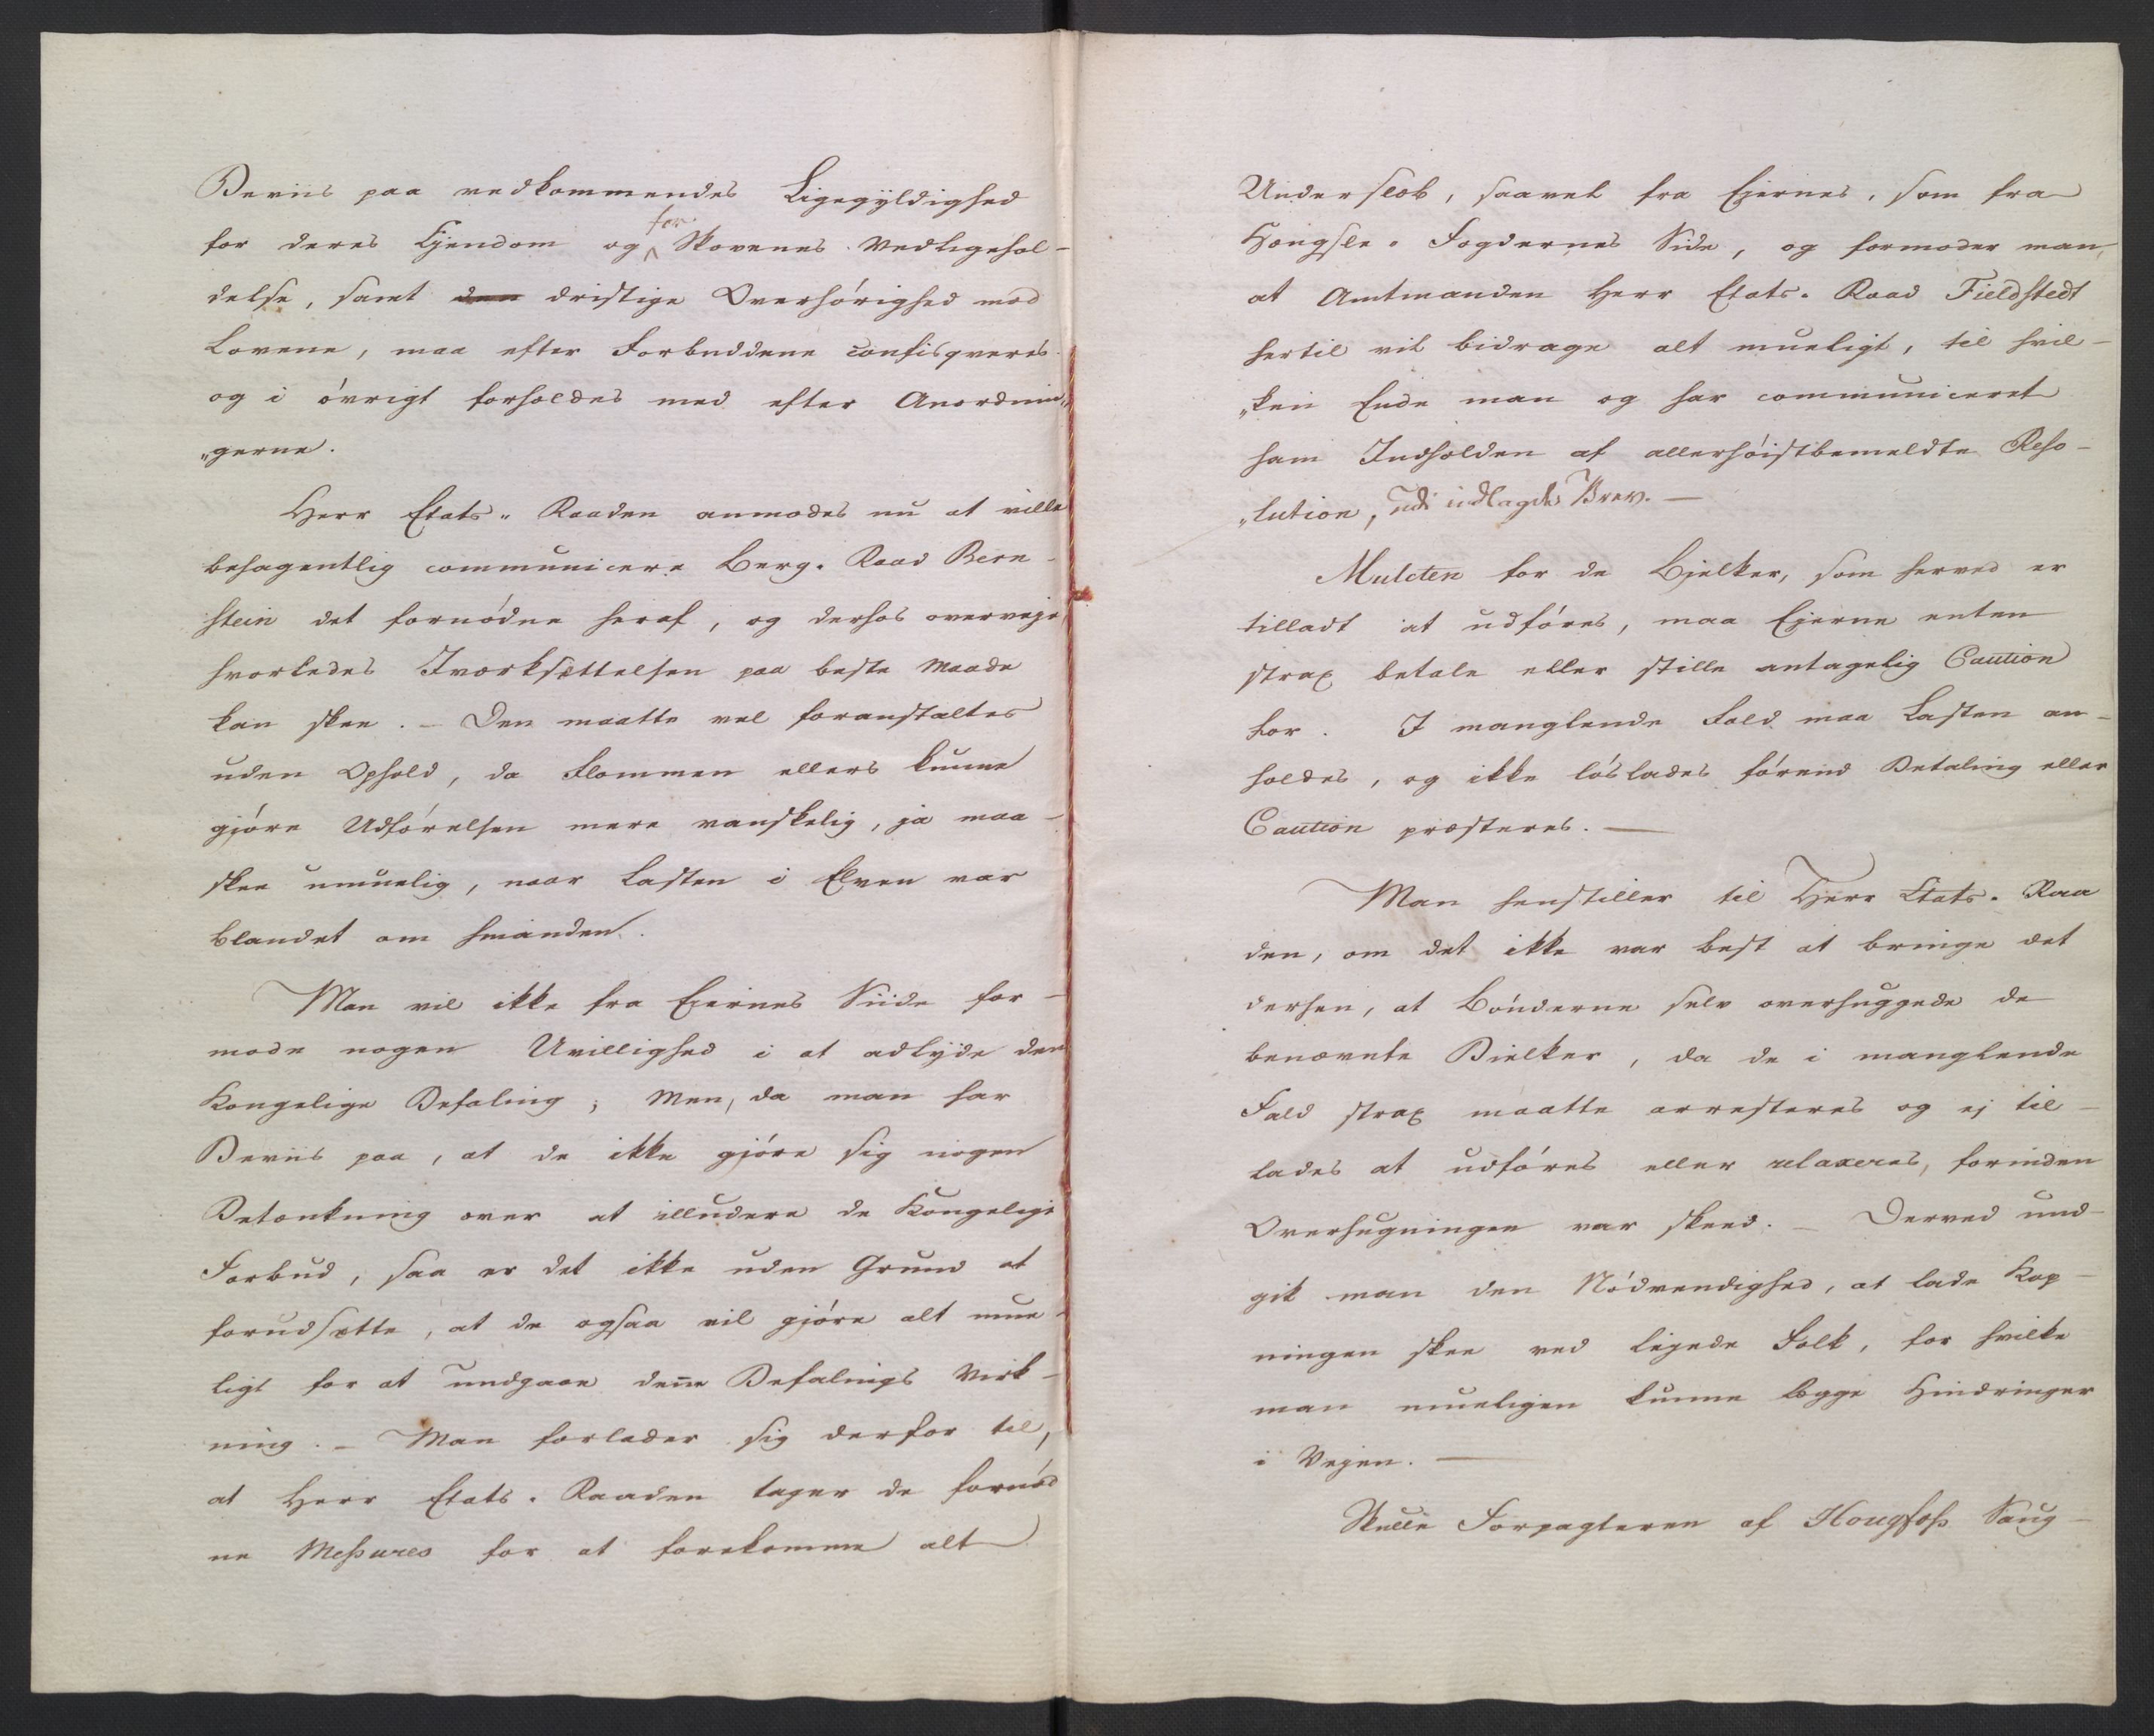 Beviis paa vedkommendes Ligegyldighed
for deres Ejendom og for Skovenes Vedligehol-
delse, samt den dristige Overhörighed mod
Lovene, maa efter Forbuddene confisqveres
og i övrigt forholdes med efter Anordnin„
„gerne.
Herr Etats„ Raaden anmodes nu at ville
behagentlig communicere Berg. Raad Bern-
stein det fornödne heraf, og derhos overveje
hvorledes Iværksættelsen paa beste Maade
kan skee. — Den maatte vel foranstaltes
uden Ophold, da Flommen ellers kunne
gjöre Udförelsen mere vanskelig, ja maa-
skee umuelig, naar Lasten i Elven var
blandet om hinanden.
Man vil ikke fra Ejernes Siide for-
mode nogen Uvillighed i at adlyde den
Kongelige Befaling; Men, da man har
Beviis paa, at de ikke gjöre sig nogen
Betænkning over at illudere de Kongelige
Forbud, saa er det ikke uden Grund at
forudsætte, at de ogsaa vil gjöre alt mue-
ligt for at undgaae denne Befalings Virk-
ning. — Man forlader sig derfor til,
at Herr Etats. Raaden tager de fornöd
ne Messures for at forekomme alt
Underslæb, saavel fra Ejernes, som fra
Hængsle. Fogdernes Side, og formoder man,
at Amtmanden Herr Etats. Raad Fieldstedt
hertil vil bidrage alt mueligt, til hvil-
„ken Ende man og har communiceret
ham Indholden af allerhöistbemeldte Reso-
„lution, udi indlagde Brev. —
Mulcten for de Bjelker, som herved er
tilladt at udföres, maa Ejerne enten
strax betale eller stille antagelig Caution
for. I manglende Fald maa Lasten an-
holdes, og ikke löslades förend Betaling eller
Caution præsteres. —
Man henstiller til Herr Etats. Raa
den, om det ikke var best at bringe det
derhen, at Bönderne selv overhuggede de
benævnte Bielker, da de i manglende
Fald strax maatte arresteres og ej til-
lades at udföres eller relaxeres, forinden
Overhugningen var skeed. — Derved und-
gik man den Nödvendighed, at lade Kap-
ningen skee ved lejede Folk, for hvilke
man mueligen kunne lægge Hindringer
i Vejen. —
Skulle Forpagteren af Hougfoss Saug-